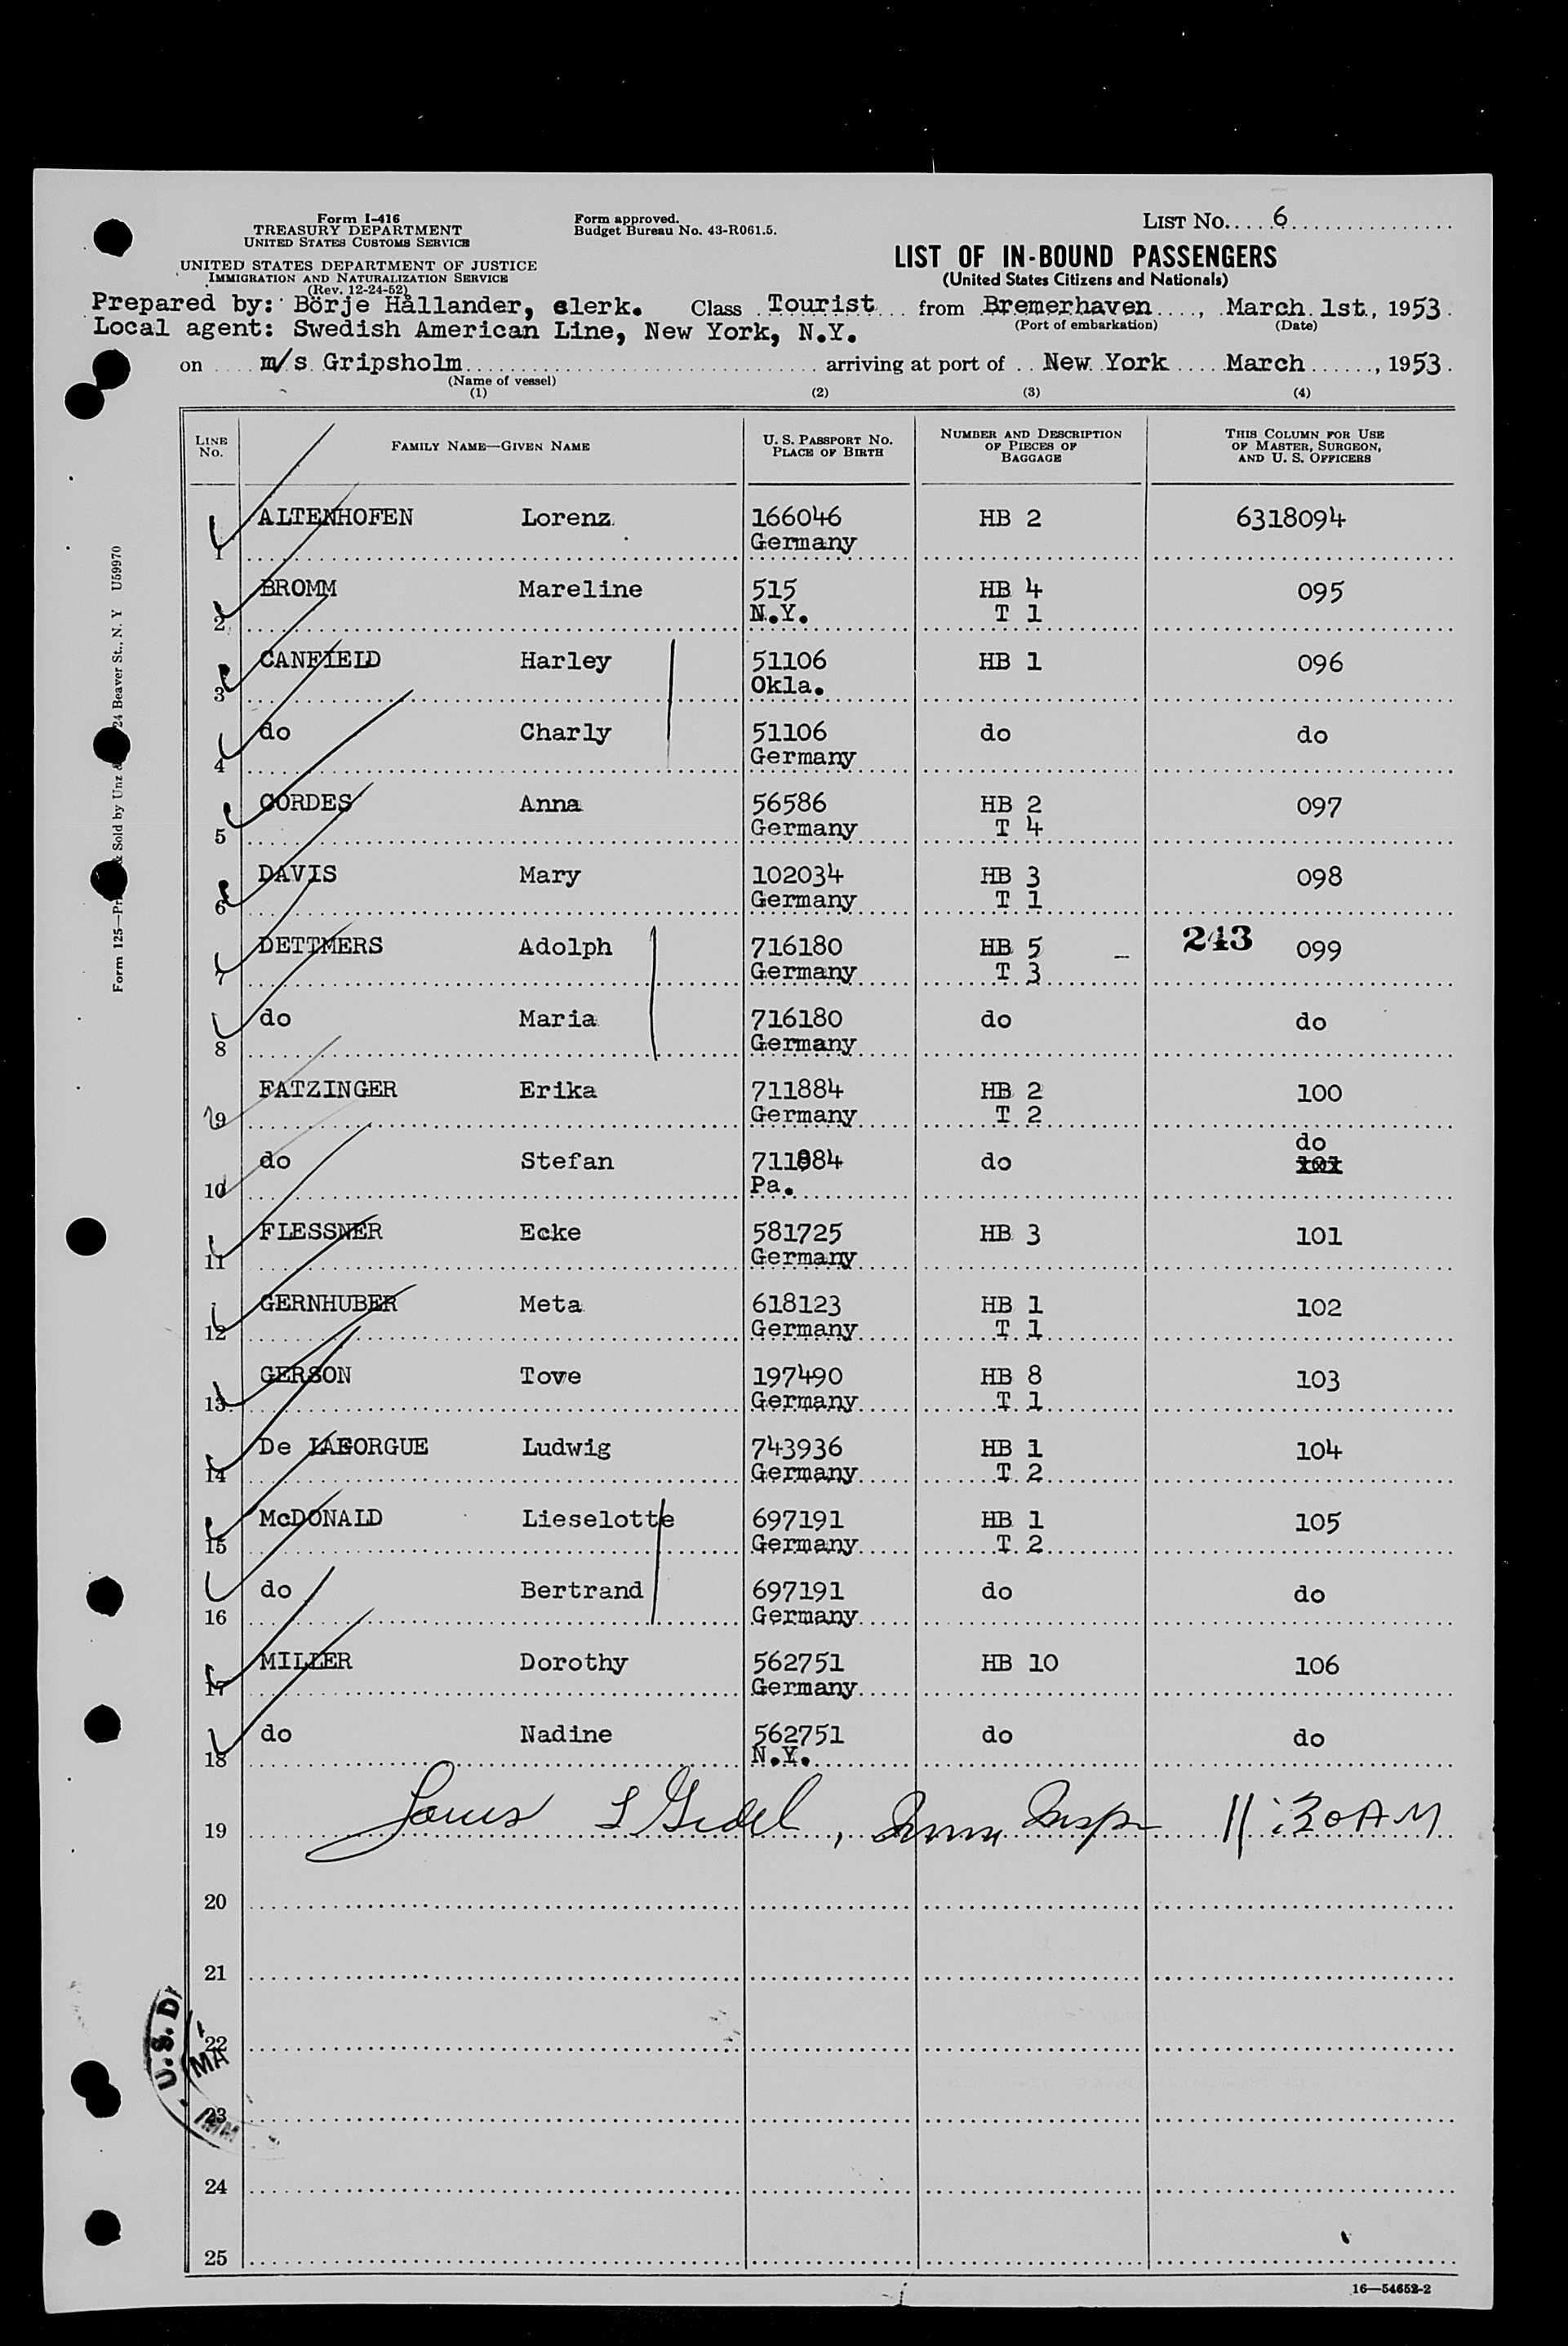 Form I-416
TREASURY DEPARTMENT
UNITED STATES CUSTOMS SERVICE
UNITED STATES DEPARTMENT OF JUSTICE
IMMIGRATION AND NATURALIZATION SERVICE
(Rev. 12-24-52)
Form approved.
Budget Bureau No. 43-R061.5.
LIST No. 6
LIST OF IN-BOUND PASSENGERS
(United States Citizens and Nationals)
Prepared by: Börje Hållander, clerk. Class Tourist from Bremerhaven, March 1st, 1953.
(Port of embarkation) (Date)
Local agent: Swedish American Line, New York, N.Y.
on m/s Gripsholm arriving at port of New York March, 1953.
(Name of vessel)
(1) (2) (3) (4)
LINE No. FAMILY NAME—GIVEN NAME U. S. PASSPORT No. PLACE OF BIRTH NUMBER AND DESCRIPTION OF PIECES OF BAGGAGE THIS COLUMN FOR USE OF MASTER, SURGEON, AND U. S. OFFICERS
ALTENHOFEN Lorenz 166046 HB 2 6318094
1 Germany
BROMM Mareline 515 HB 4 095
2 N.Y. T 1
CANFIELD Harley 51106 HB 1 096
3 Okla.
do Charly 51106 do do
4 Germany
CORDES Anna 56586 HB 2 097
5 Germany T 4
DAVIS Mary 102034 HB 3 098
6 Germany T 1
DETTMERS Adolph 716180 HB 5 – 243 099
7 Germany T 3
do Maria 716180 do do
8 Germany
FATZINGER Erika 711884 HB 2 100
9 Germany T 2
do
do Stefan 711884 do 101
10 Pa.
FLESSNER Ecke 581725 HB 3 101
11 Germany
GERNHUBER Meta 618123 HB 1 102
12 Germany T 1
GERSON Tove 197490 HB 8 103
13 Germany T 1
De LAFORGUE Ludwig 743936 HB 1 104
14 Germany T 2
McDONALD Lieselotte 697191 HB 1 105
15 Germany T 2
do Bertrand 697191 do do
16 Germany
MILLER Dorothy 562751 HB 10 106
17 Germany
do Nadine 562751 do do
18 N.Y.
19 Louis Imm Insp 11:30 AM
20
21
22
23
24
25
16—54652-2
U. S. D
MA
IMM
Sold by Unz 24 Beaver St., N. Y U59970
Form 125